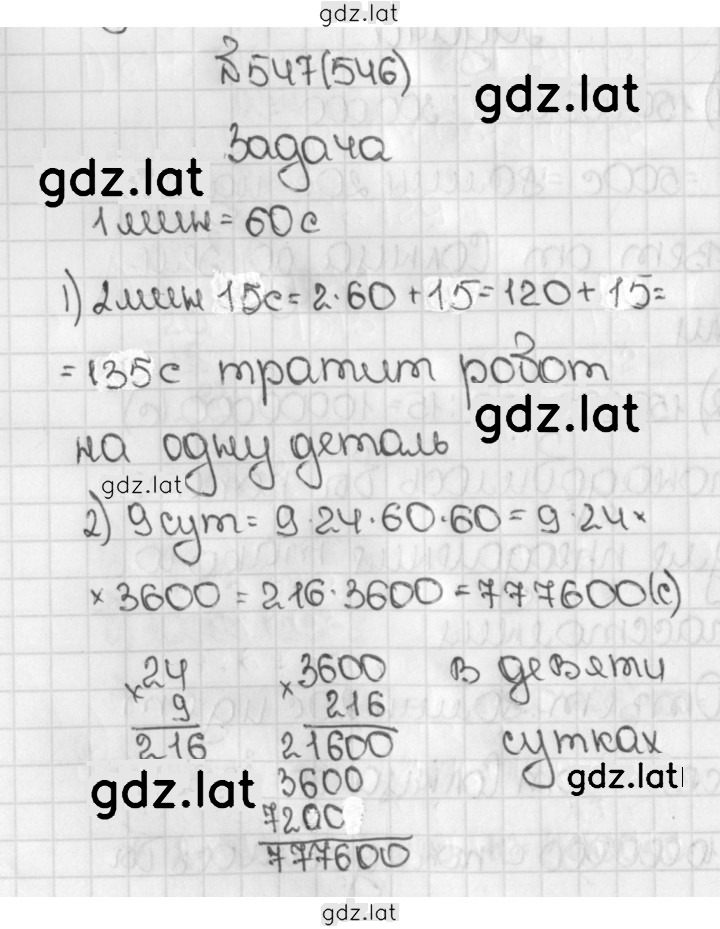 gdz.lat
№547(546)
gdz.lat
Задача
gdz.lat
1 мин = 60 с
1) 2 мин 15 с = 2·60 + 15 = 120 + 15 =
= 135 с тратит робот
gdz.lat
на одну деталь
gdz.lat
2) 9 сут = 9·24·60·60 = 9·24×
×3600 = 216·3600 = 777600(с)
24 3600 в девяти
× 9 × 216
216 21600 сутках
gdz.lat
3600
gdz.lat
7200
777600
gdz.lat